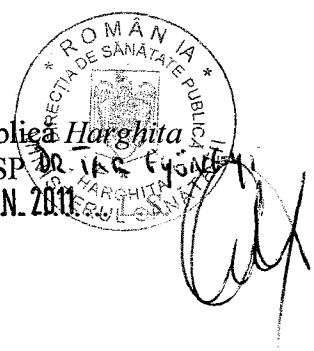 ROMÂNIA
DIRECŢIA DE SĂNĂTATE PUBLICĂ
HARGHITA
MINISTERUL SĂNĂTĂŢII
blică Harghita
SP DR.
N. 2011. L.S.